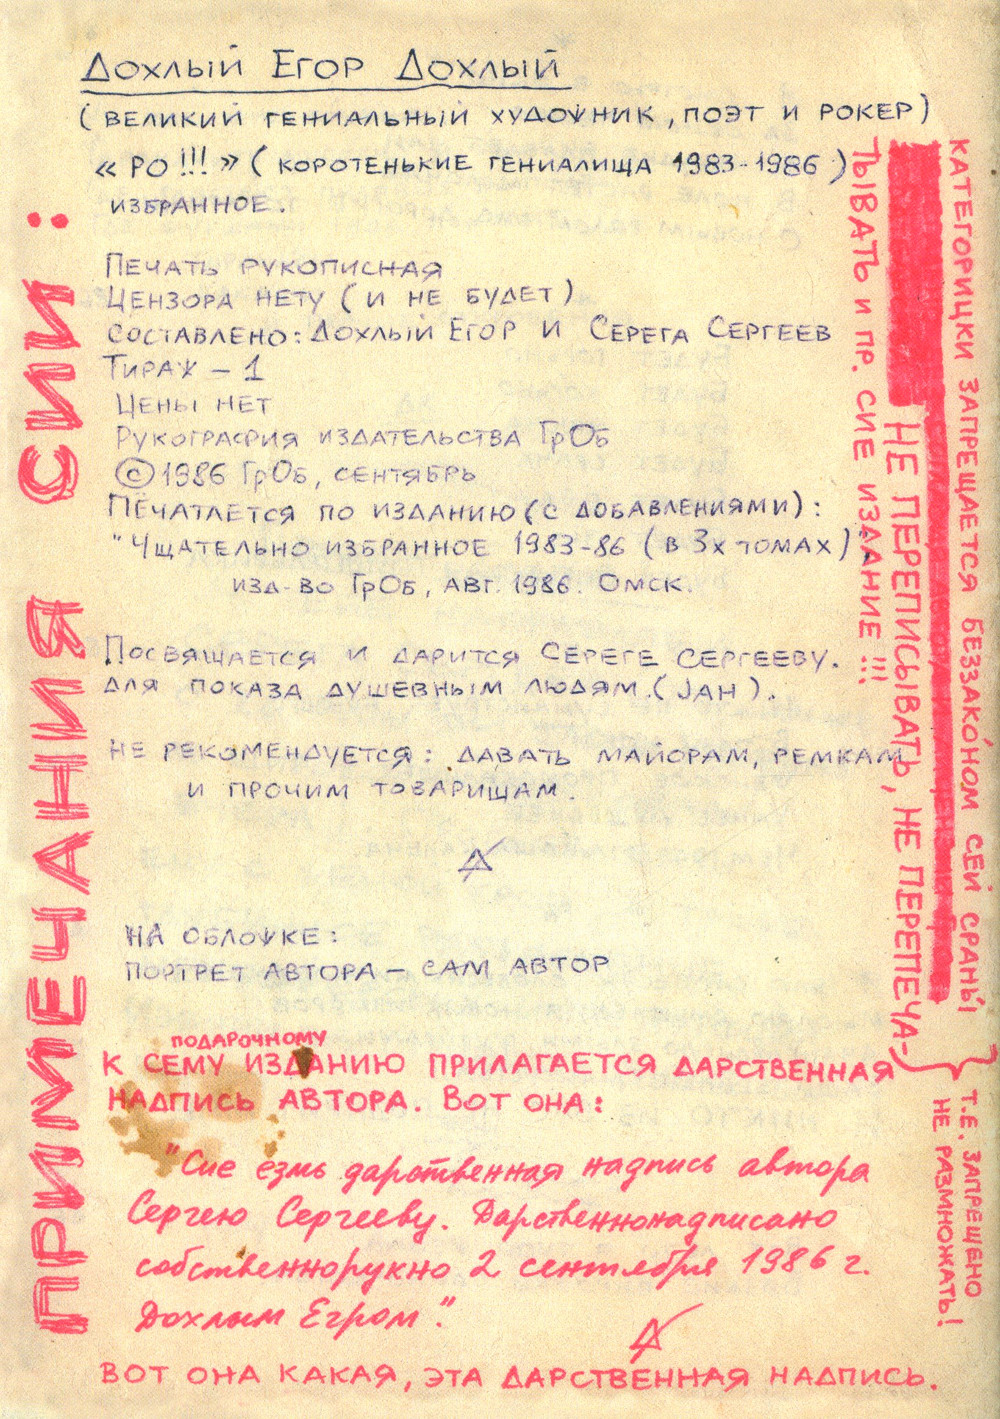 ДОХЛЫЙ ЕГОР ДОХЛЫЙ
(ВЕЛИКИЙ ГЕНИАЛЬНЫЙ ХУДОЖНИК, ПОЭТ И РОКЕР)
«РО!!!» (КОРОТЕНЬКИЕ ГЕНИАЛИЩА 1983-1986)
ИЗБРАННОЕ.
ПЕЧАТЬ РУКОПИСНАЯ
ЦЕНЗОРА НЕТУ (И НЕ БУДЕТ)
СОСТАВЛЕНО: ДОХЛЫЙ ЕГОР И СЕРЕГА СЕРГЕЕВ
ТИРАЖ – 1
ЦЕНЫ НЕТ
РУКОГРАФИЯ ИЗДАТЕЛЬСТВА ГрОб
© 1986 ГрОб, СЕНТЯБРЬ
ПЕЧАТЛЕТСЯ ПО ИЗДАНИЮ (С ДОБАВЛЕНИЯМИ):
"ЧЩАТЕЛЬНО ИЗБРАННОЕ 1983-86 (В 3х ТОМАХ)",
ИЗД-ВО ГрОб, АВГ. 1986. ОМСК.
ПОСВЯЩАЕТСЯ И ДАРИТСЯ СЕРЕГЕ СЕРГЕЕВУ.
ДЛЯ ПОКАЗА ДУШЕВНЫМ ЛЮДЯМ. (JАН).
НЕ РЕКОМЕНДУЕТСЯ: ДАВАТЬ МАЙОРАМ, РЕМКАМ
И ПРОЧИМ ТОВАРИЩАМ.
НА ОБЛОЖКЕ:
ПОРТРЕТ АВТОРА – САМ АВТОР
ПОДАРОЧНОМУ
К СЕМУ ИЗДАНИЮ ПРИЛАГАЕТСЯ ДАРСТВЕННАЯ
НАДПИСЬ АВТОРА. ВОТ ОНА:
"Сие езмь дарственная надпись автора
Сергею Сергееву. Дарственнонадписано
собственнорукно 2 сентября 1986 г.
Дохлым Егром."
ВОТ ОНА КАКАЯ, ЭТА ДАРСТВЕННАЯ НАДПИСЬ.
ПРИМЕЧАНИЯ СИИ:
КАТЕГОРИЦКИ ЗАПРЕЩАЕТСЯ БЕЗЗАКО́НОМ СЕЙ СРАНЫ́
НЕ ПЕРЕПИСЫВАТЬ, НЕ ПЕРЕПЕЧА-
ТЫВАТЬ И ПР. СИЕ ИЗДАНИЕ!!!
Т.Е. ЗАПРЕЩЕНО
НЕ РАЗМНОЖАТЬ!